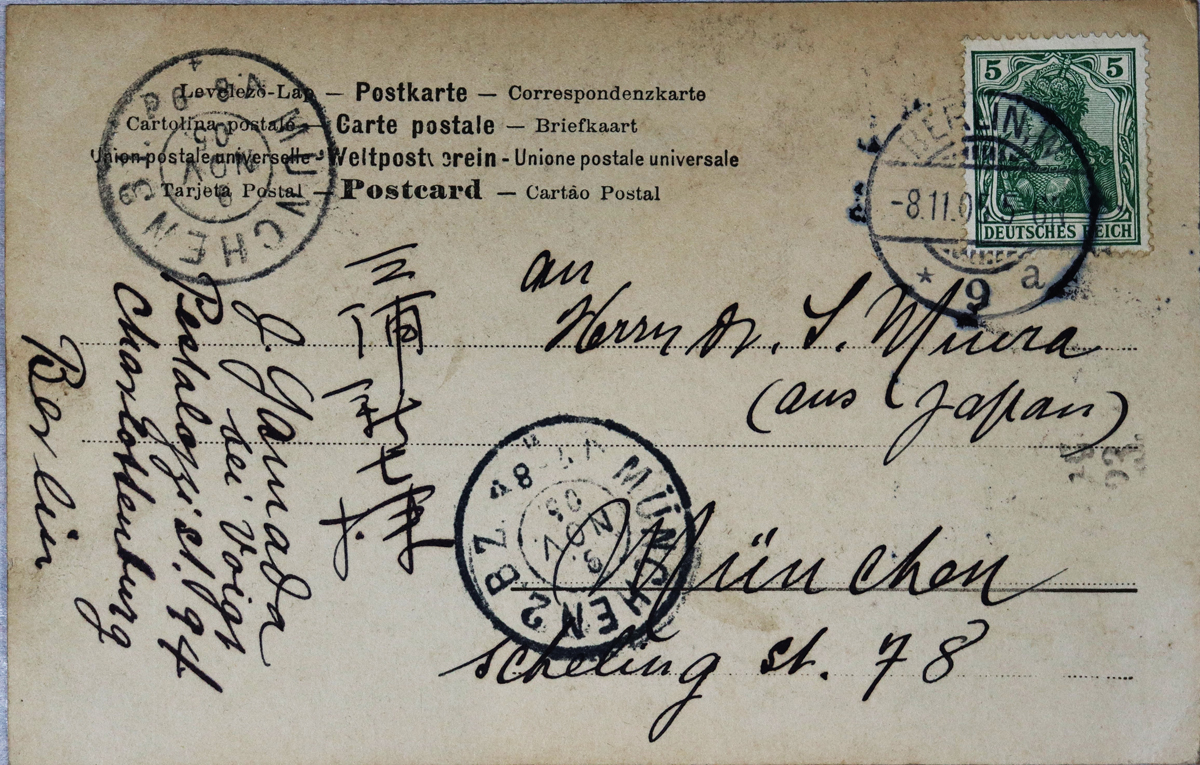 Levelező-Lap — Postkarte — Correspondenzkarte
Cartolina postale — Carte postale — Briefkaart
Union postale universelle - Weltpostverein - Unione postale universale
Tarjeta Postal — Postcard — Cartão Postal
5 5
DEUTSCHES REICH
BERLIN
-8.11.0
* 9 a
MÜNCHEN
NOV
05
an
Herrn Dr. S. Miura
(aus Japan)
München
scheling st. 78
MÜNCHEN 2 BZ
NOV
05
三浦
J. Yamada
bei Voigt
Pestalozzi st. 94
Charlottenburg
Berlin